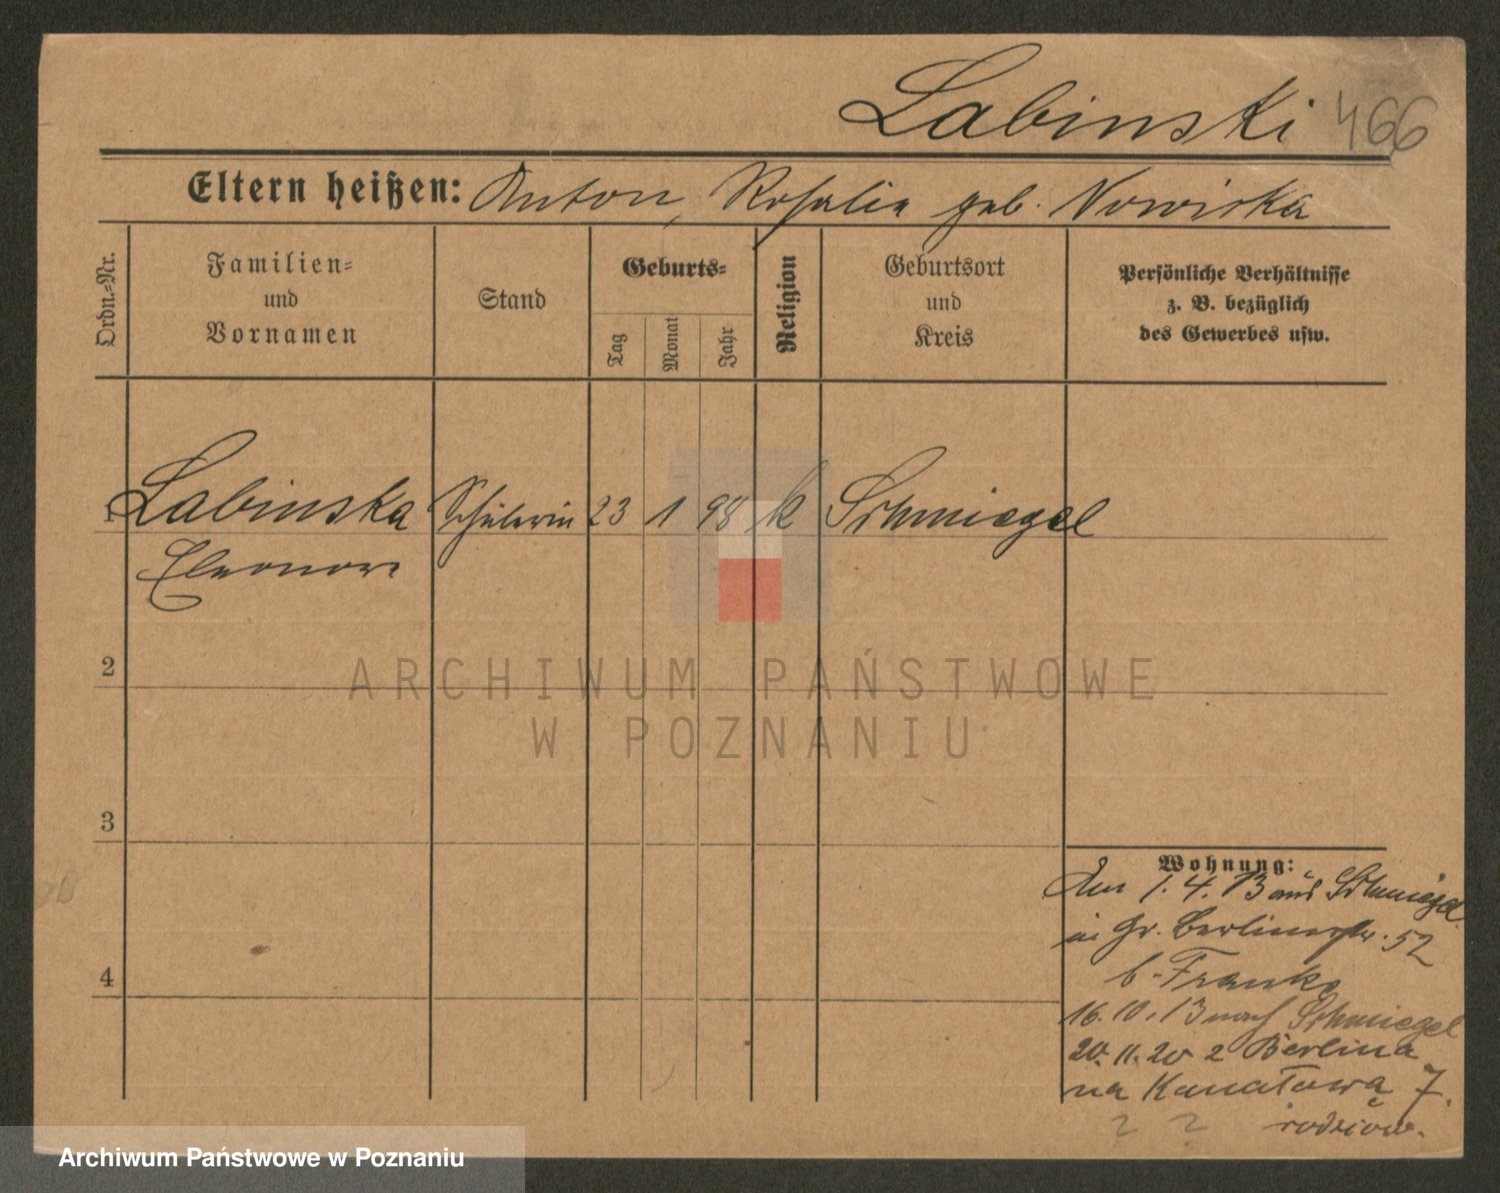 Labinski 466
Eltern heißen: Anton, Rosalie geb. Nowiska
Ordn.-Nr.
Familien-
und
Vornamen
Stand
Geburts-
Tag
Monat
Jahr
Religion
Geburtsort
und
Kreis
Persönliche Verhältnisse
z. B. bezüglich
des Gewerbes usw.
1 Labinska Schülerin 23 1 98 k Schmiegel
Eleonore
2
3
4
Wohnung:
Am 1.4.13 aus Schmiegel
in Gr. Berlinerstr. 52
b. Franke
16.10.13 nach Schmiegel
20.11.20 z Berlina
na Kanałową 7.
? ? rodziców.
ARCHIWUM PAŃSTWOWE
W POZNANIU
Archiwum Państwowe w Poznaniu